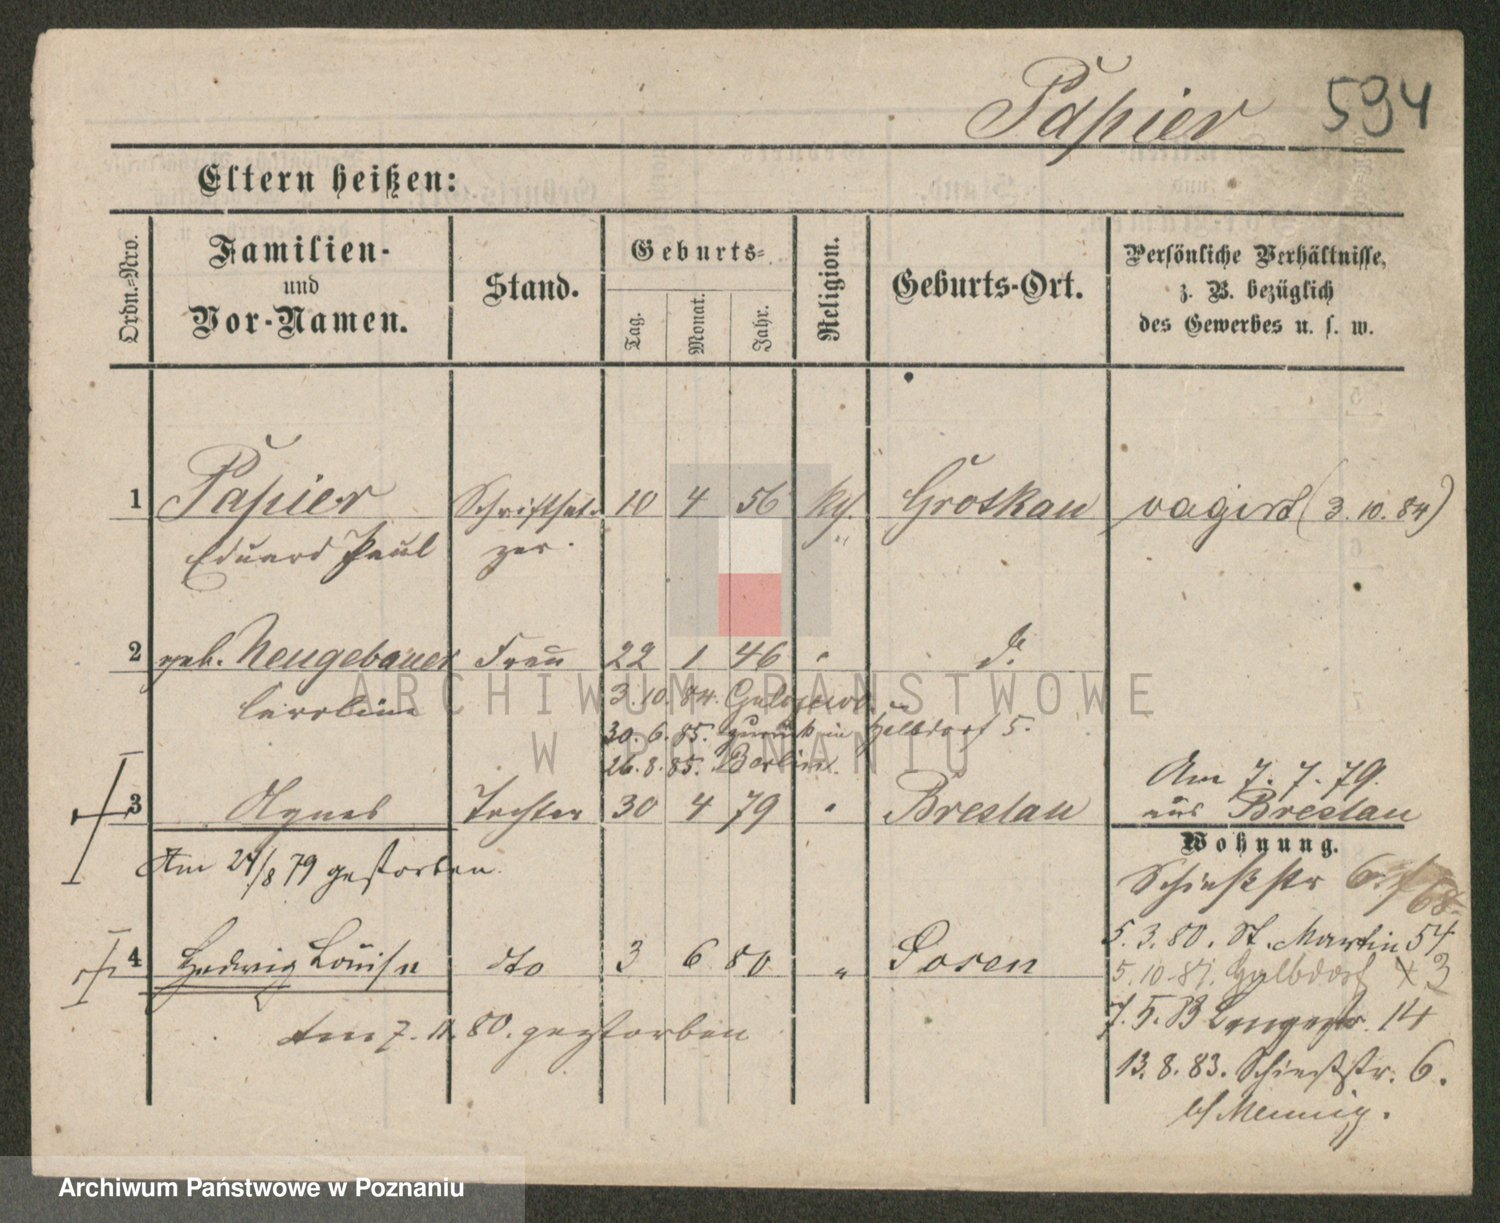 Papier 594
Eltern heißen:
Ordn.-Nro.
Familien-
und
Vor-Namen.
Stand.
Geburts-
Tag.
Monat.
Jahr.
Religion.
Geburts-Ort.
Persönliche Verhältnisse,
z. B. bezüglich
des Gewerbes u. s. w.
1 Papier Schriftset- 10 4 56 kath. Grotkau vagirt (3.10.84)
Eduard Paul zer.
2 geb. Neugebauer Frau 22 1 46 " do.
Caroline 3.10.84.
30.6.85. zurück in Halbdorf 5.
26.8.85. Berlin.
Am 7.7.79.
3 Agnes Tochter 30 4 79 " Breslau aus Breslau
Wohnung.
Am 24/8 79 gestorben. Schießstr 6.
68
5.3.80. St. Martin 57
4 Hedwig Louise dto 3 6 80 " Posen
5.10.81. Halbdorf 3
Am 7.11.80. gestorben 7.5.83 Langestr. 14
13.8.83. Schießstr. 6.
b/ Mennig.
ARCHIWUM PAŃSTWOWE
W POZNANIU
Archiwum Państwowe w Poznaniu